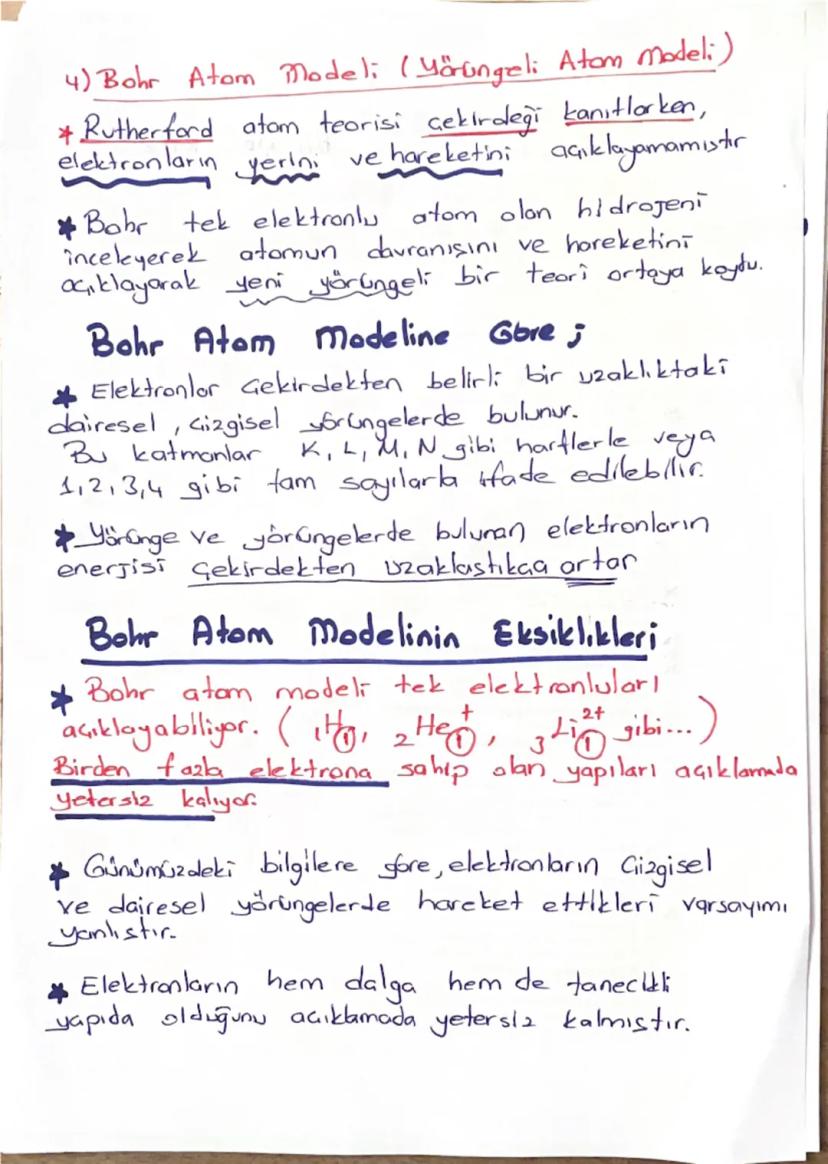 4) Bohr Atom Modeli (Yörüngeli Atom Modeli)
* Rutherford atom teorisi çekirdeği kanıtlarken,
elektronların yerini ve hareketini açıklayamamıştır
* Bohr tek elektronlu atom olan hidrojeni
inceleyerek atomun davranışını ve hareketini
açıklayarak yeni yörüngeli bir teori ortaya koydu.
Bohr Atom Modeline Göre ;
* Elektronlar çekirdekten belirli bir uzaklıktaki
dairesel, çizgisel yörüngelerde bulunur.
Bu katmanlar K, L, M, N gibi harflerle veya
1,2,3,4 gibi tam sayılarla ifade edilebilir.
* Yörünge ve yörüngelerde bulunan elektronların
enerjisi çekirdekten uzaklaştıkça artar
Bohr Atom Modelinin Eksiklikleri
* Bohr atom modeli tek elektronluları
açıklayabiliyor. ( ₁H①, ₂He⁺①, ₃Li²⁺① gibi... )
Birden fazla elektrona sahip olan yapıları açıklamada
yetersiz kalıyor.
* Günümüzdeki bilgilere göre, elektronların çizgisel
ve dairesel yörüngelerde hareket ettikleri varsayımı
yanlıştır.
* Elektronların hem dalga hem de tanecikli
yapıda olduğunu açıklamada yetersiz kalmıştır.